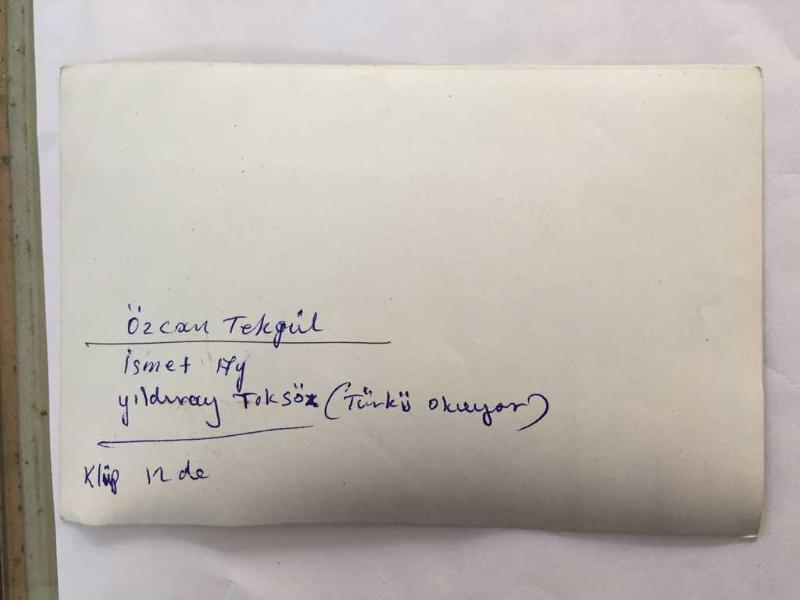 Özcan Tekgül
İsmet Ay
yıldıray Toksöz (Türkü okuyor)
Klüp 12 de